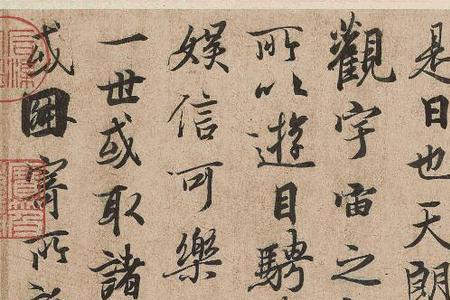 是日也天朗
觀宇宙之
所以遊目騁
娛信可樂
一世或取諸
或因寄所